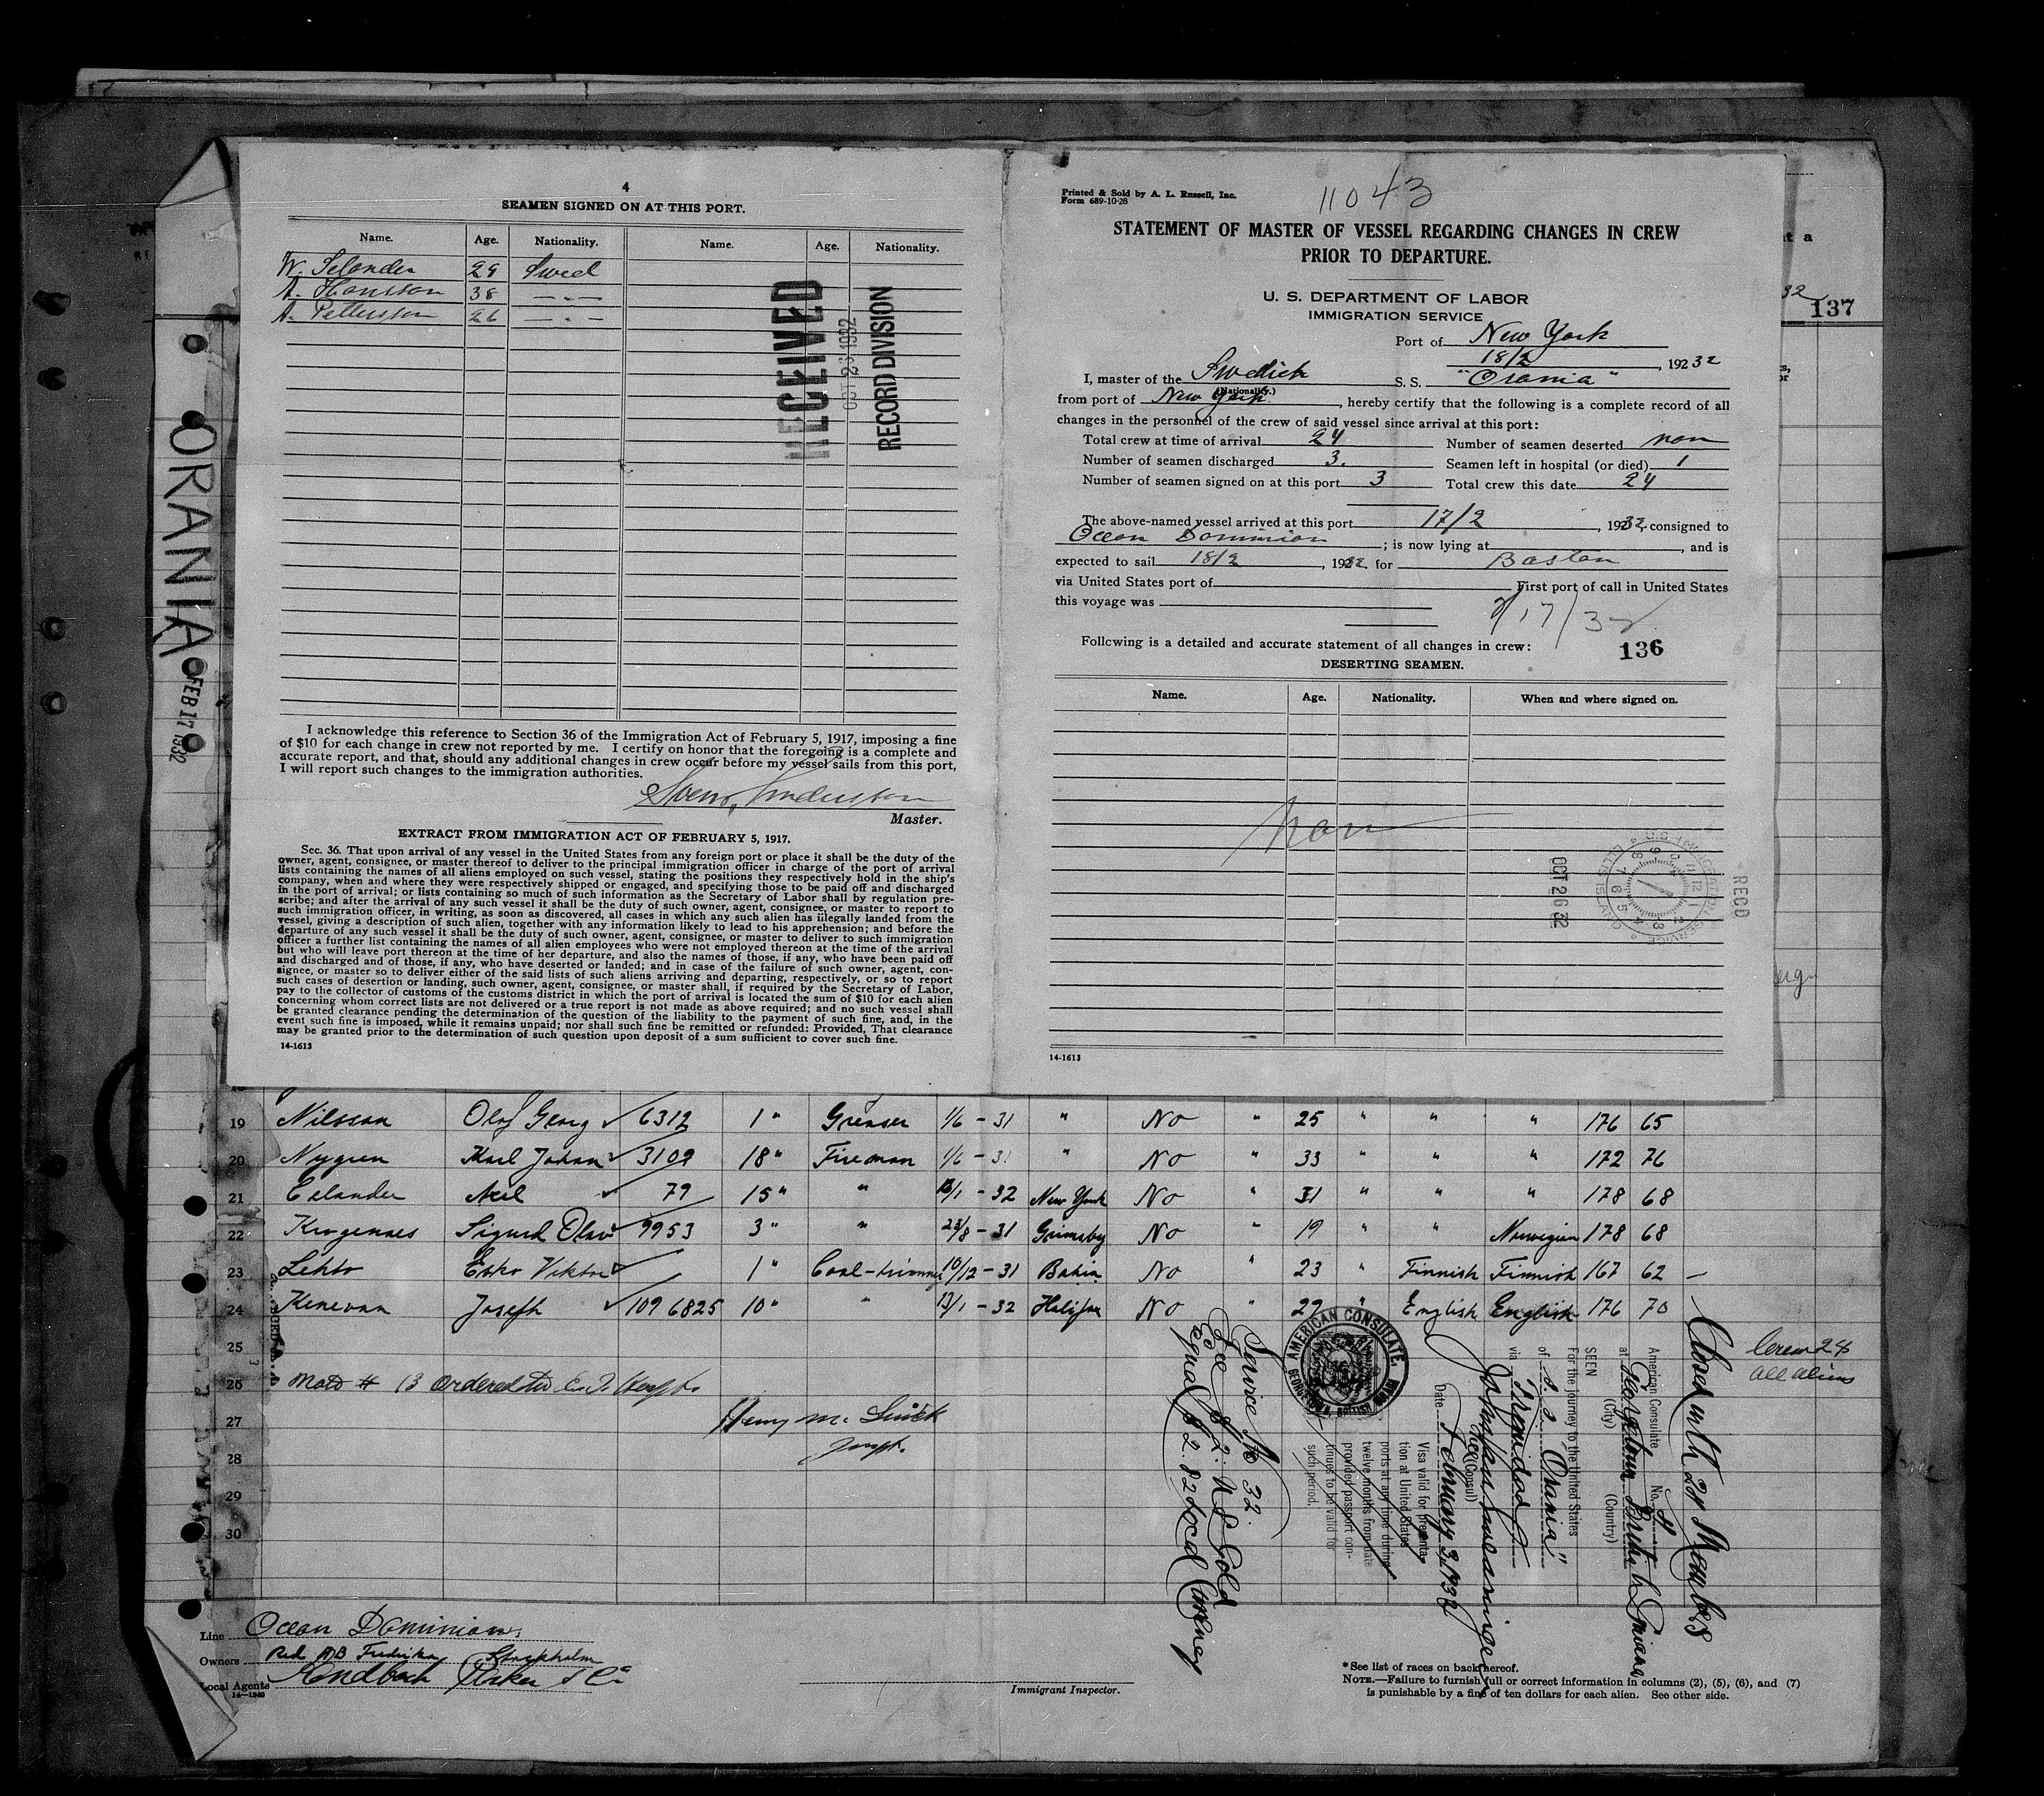 4
SEAMEN SIGNED ON AT THIS PORT.
Name. Age. Nationality. Name. Age. Nationality.
W. Selander 29 Swed
A. Hansson 38 — " —
A. Pettersson 26 — " —
RECEIVED
OCT 26 1932
RECORD DIVISION
I acknowledge this reference to Section 36 of the Immigration Act of February 5, 1917, imposing a fine
of $10 for each change in crew not reported by me. I certify on honor that the foregoing is a complete and
accurate report, and that, should any additional changes in crew occur before my vessel sails from this port,
I will report such changes to the immigration authorities.
Master.
EXTRACT FROM IMMIGRATION ACT OF FEBRUARY 5, 1917.
Sec. 36. That upon arrival of any vessel in the United States from any foreign port or place it shall be the duty of the
owner, agent, consignee, or master thereof to deliver to the principal immigration officer in charge of the port of arrival
lists containing the names of all aliens employed on such vessel, stating the positions they respectively hold in the ship's
company, when and where they were respectively shipped or engaged, and specifying those to be paid off and discharged
in the port of arrival; or lists containing so much of such information as the Secretary of Labor shall by regulation pre-
scribe; and after the arrival of any such vessel it shall be the duty of such owner, agent, consignee, or master to report to
such immigration officer, in writing, as soon as discovered, all cases in which any such alien has illegally landed from the
vessel, giving a description of such alien, together with any information likely to lead to his apprehension; and before the
departure of any such vessel it shall be the duty of such owner, agent, consignee, or master to deliver to such immigration
officer a further list containing the names of all alien employees who were not employed thereon at the time of the arrival
but who will leave port thereon at the time of her departure, and also the names of those, if any, who have been paid off
and discharged and of those, if any, who have deserted or landed; and in case of the failure of such owner, agent, con-
signee, or master so to deliver either of the said lists of such aliens arriving and departing, respectively, or so to report
such cases of desertion or landing, such owner, agent, consignee, or master shall, if required by the Secretary of Labor,
pay to the collector of customs of the customs district in which the port of arrival is located the sum of $10 for each alien
concerning whom correct lists are not delivered or a true report is not made as above required; and no such vessel shall
be granted clearance pending the determination of the question of the liability to the payment of such fine, and, in the
event such fine is imposed, while it remains unpaid; nor shall such fine be remitted or refunded: Provided, That clearance
may be granted prior to the determination of such question upon deposit of a sum sufficient to cover such fine.
14-1613
Printed & Sold by A. L. Russell, Inc.
Form 689-10-28
11043
STATEMENT OF MASTER OF VESSEL REGARDING CHANGES IN CREW
PRIOR TO DEPARTURE.
U. S. DEPARTMENT OF LABOR
IMMIGRATION SERVICE
Port of New York
18/2, 19232
I, master of the Swedich S. S. "Orania"
(Nationality.)
from port of New York, hereby certify that the following is a complete record of all
changes in the personnel of the crew of said vessel since arrival at this port:
Total crew at time of arrival 24 Number of seamen deserted non
Number of seamen discharged 3. Seamen left in hospital (or died) 1
Number of seamen signed on at this port 3 Total crew this date 24
The above-named vessel arrived at this port 17/2, 1932, consigned to
Ocean Dominion; is now lying at , and is
expected to sail 18/2, 1932 for Boston
via United States port of First port of call in United States
this voyage was
2/17/32
Following is a detailed and accurate statement of all changes in crew:
136
DESERTING SEAMEN.
Name. Age. Nationality. When and where signed on.
non
RECD
OCT 26 32
U.S. IMMIGRATION SERVICE
14-1613
137
ORANIA
FEB 17 1932
19 Nilsson Olof Georg 6312 1 " Greaser 1/6 - 31 " No " 25 " " " 176 65
20 Nygren Karl Johan 3109 18 " Fireman 1/6 - 31 " No " 33 " " " 172 76
21 Celander Axel 79 15 " " /1 - 32 New York No " 31 " " " 178 68
22 Krogenaes Sigurd Olav 9953 3 " " 23/8 - 31 Grimsby No " 19 " " Norwegian 178 68
23 Lehto Esko Viktor 1 " Coal-trimmer 10/12 - 31 Bahia No " 23 " Finnish Finnish 167 62 —
24 Kenevan Joseph 1096825 10 " " 13/1 - 32 Halifax No " 29 " English English 176 70
25
26
27
28
29
30
Henry Mc
Insp.
Service No 32.
Fee $2. U S Gold
equal $2.82 Local Currency
AMERICAN CONSULATE,
GEORGETOWN, BRITISH GUIANA
Closed with 24 Members
Crew 24
all aliens
American Consulate No. 4
at Georgetown British Guiana
(City) (Country)
SEEN
For the journey to the United States
of S. S. "Orania"
via Trinidad
(Consul)
Date February 3, 1932
Visa valid for presenta-
tion at United States
ports at any time during
twelve months from date
provided passport con-
tinues to be valid for
such period.
Line Ocean Dominion
Owners Red. AB Fredrika Stockholm
Local Agents
14—1240
Immigrant Inspector.
* See list of races on back hereof.
NOTE.—Failure to furnish full or correct information in columns (2), (5), (6), and (7)
is punishable by a fine of ten dollars for each alien. See other side.